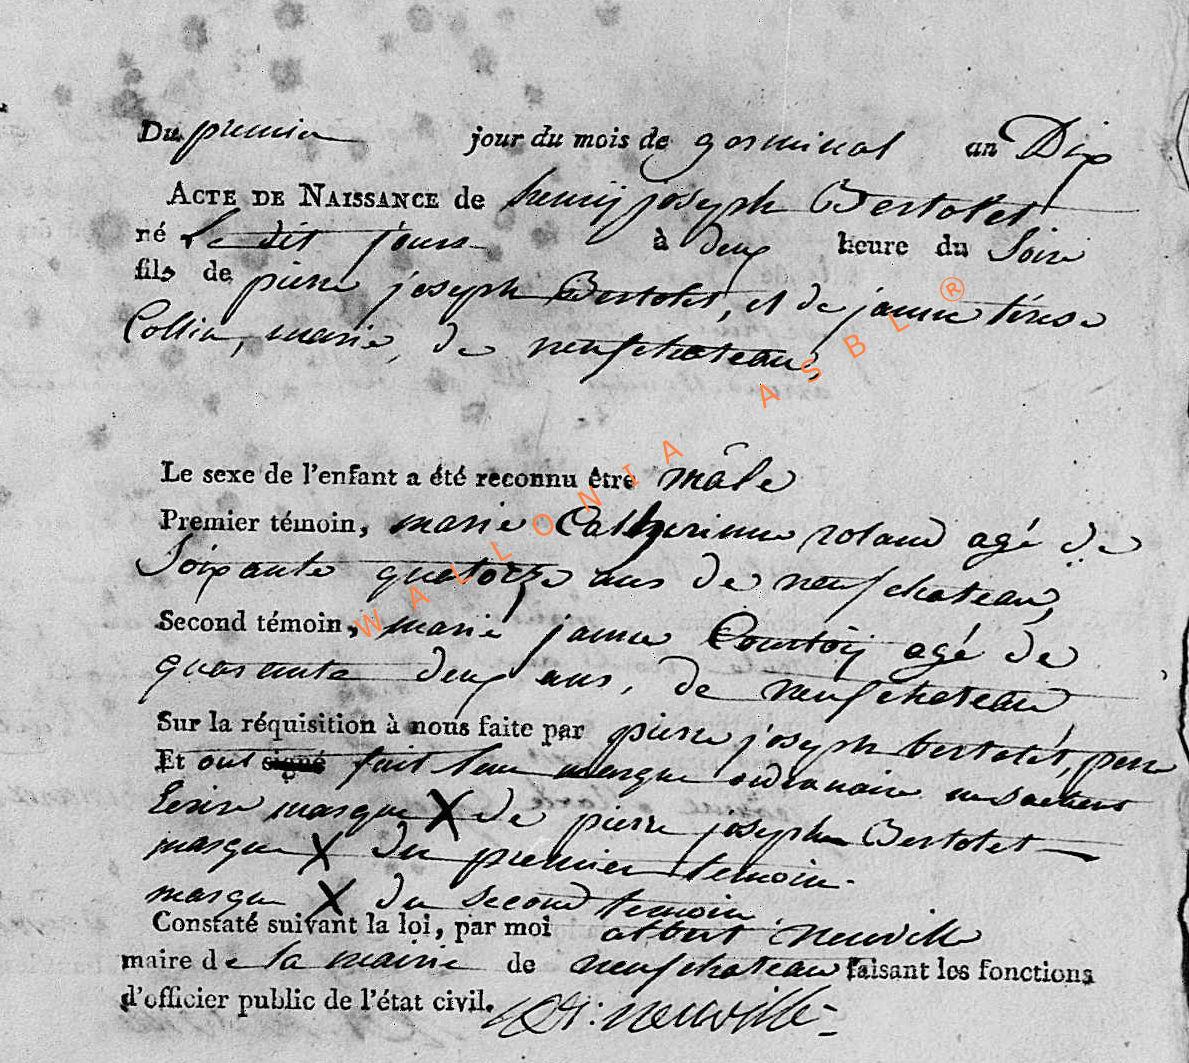 Du premier jour du mois de germinal an Dix
ACTE DE NAISSANCE de henry joseph Bertolet
né Le dit jours à deux heure du Soire
fils de pierre joseph Bertolet, et de janne térese
Collin, marié, de neufchateau,
Le sexe de l'enfant a été reconnu être mâle
Premier témoin, marie Catherinne roland agé de
Soixante quatorze ans de neufchateau,
Second témoin, marie janne Courtoy agé de
quarante deux ans, de neufchateau
Sur la réquisition à nous faite par pierre joseph bertolet, pere
Et ont signé fait leur marque ordinaire ne sachens
Ecrire marque X de pierre joseph Bertolet
marque X du premier temoin.
marque X du second temoin.
Constaté suivant la loi, par moi albert Neuville
maire de la mairie de neufchateau faisant les fonctions
d'officier public de l'état civil. neuville
WALLONIA ASBL ®